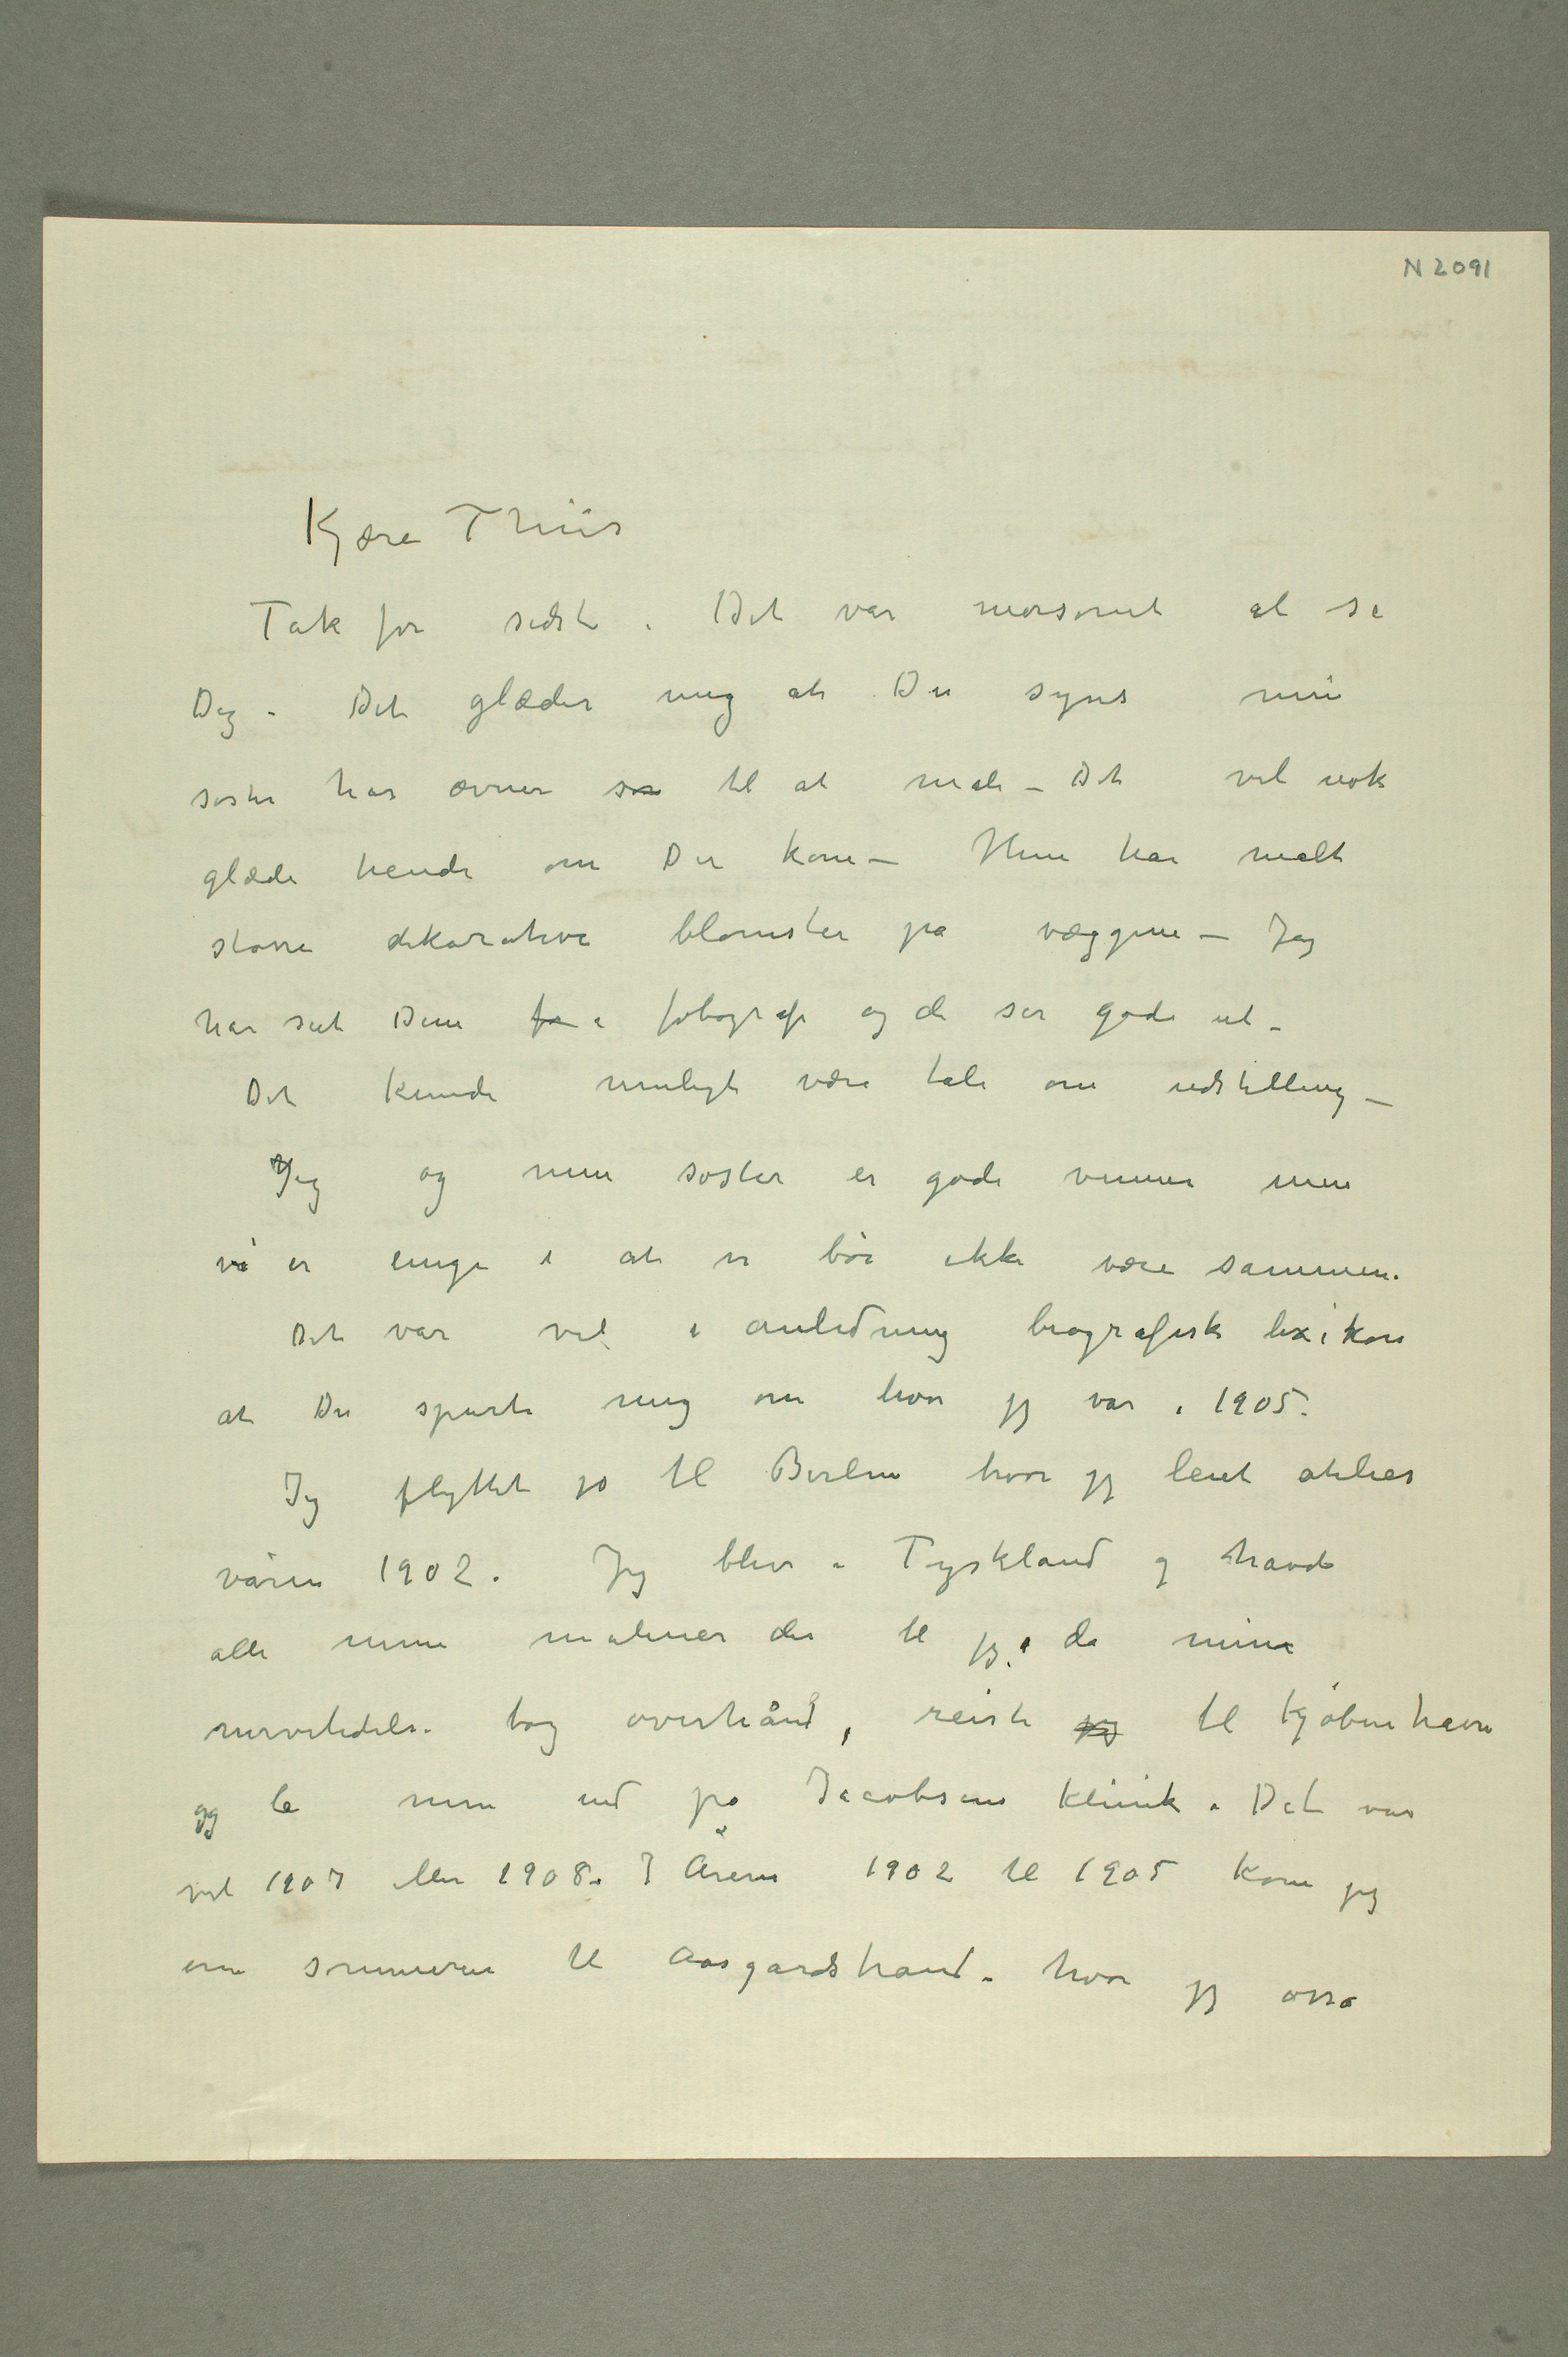 N 2091
Kjære Thiis
Tak for sidst. Det var morsomt at se
Dig – Det glæder mig at Du synes min
søster har ævner som til at male – Det vil nok
glæde hende om Du kom – Hun har malt
større dekorative blomster på væggene – Jeg
har set Dem fo i fotografi og de ser gode ut –
Det kunde muligt være tale om udstilling –
Jeg og min søster er gode venner men
vi er enige i at vi bør ikke være sammen.
Det var vel i anledning biografisk lexikon
at Du spurte mig om hvor jeg var i 1905.
Jeg flyttet jo til Berlin hvor jeg leiet atelier
våren 1902. Jeg blev i Tyskland og havde
alle mine malerier der til jeg, da mine
nervelidelse tog overhånd, reiste jeg til Kjøbenhavn
og la mig ind på Jacobsens Klinik. Det var
vel 1907 eller 1908. I Årene 1902 til 1905 kom jeg
om sommeren til Aasgårdstrand. hvor jeg også